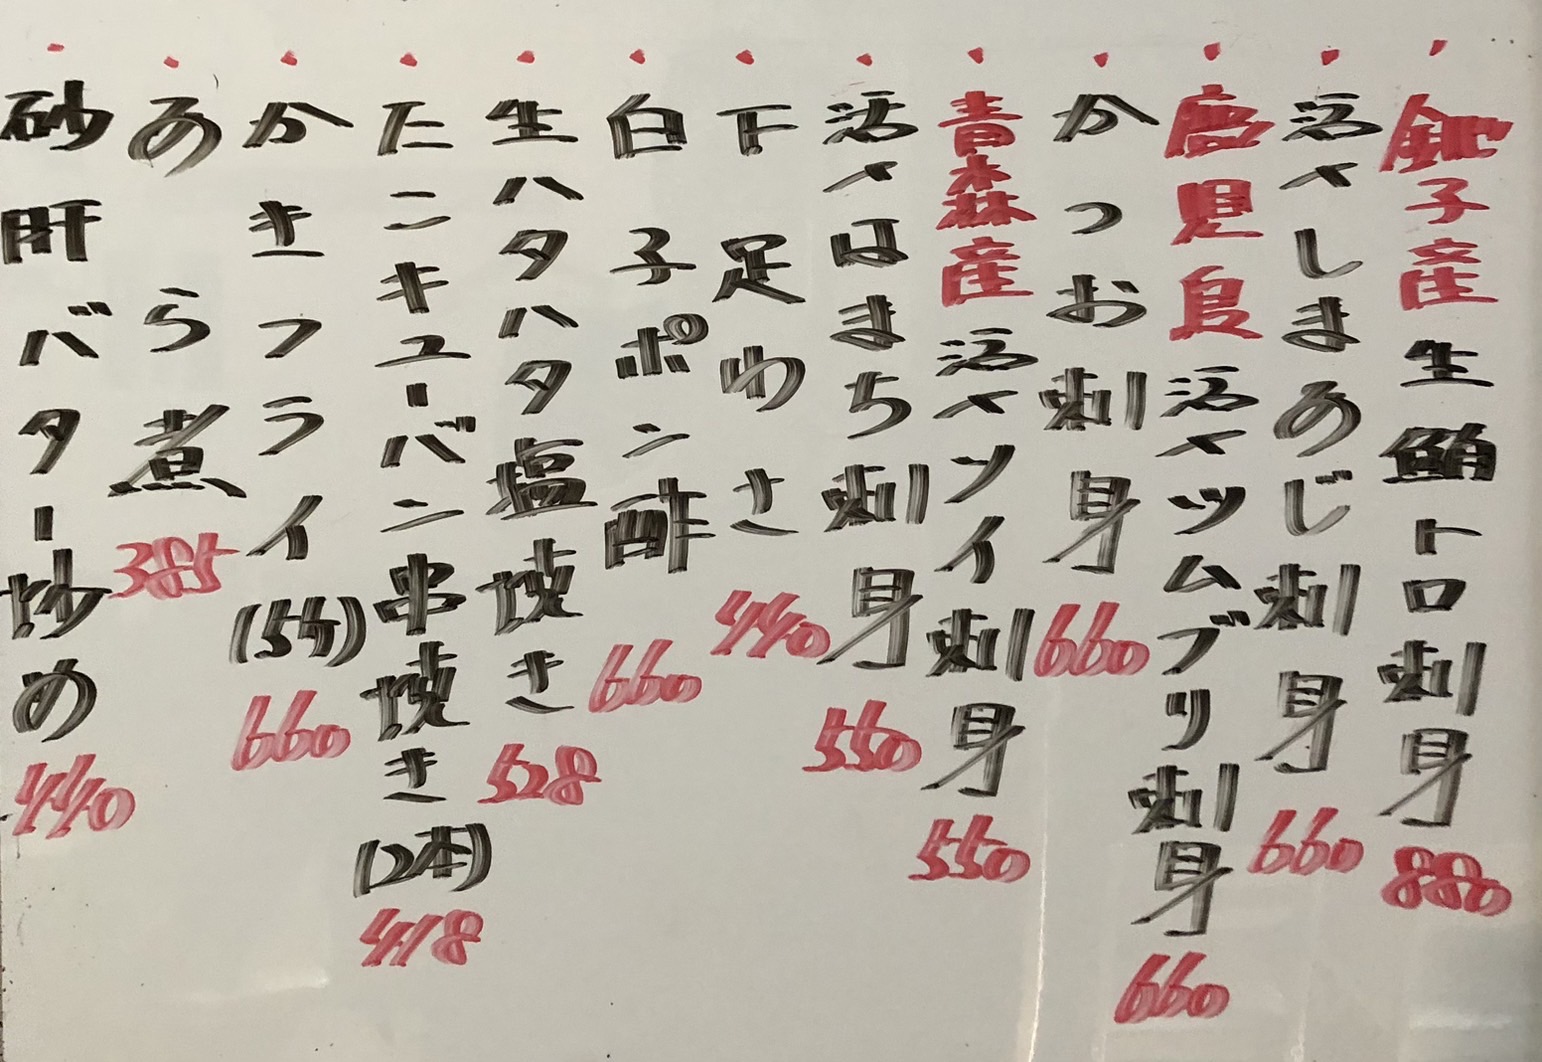 ・銚子産生鮪トロ刺身880
・活〆しまあじ刺身660
・鹿児島活〆ツムブリ刺身660
・かつお刺身660
・青森産活〆ソイ刺身550
・活〆はまち刺身550
・下足わさ440
・白子ポン酢660
・生ハタハタ塩焼き528
・たンキューバン串焼き(2本)418
・かきフライ(5ケ)660
・あら煮385
・砂肝バター炒め440